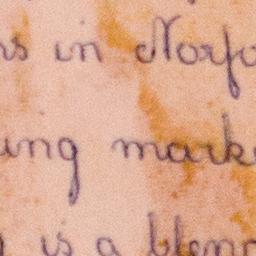 ns in Norfo
ing mark
is a blen